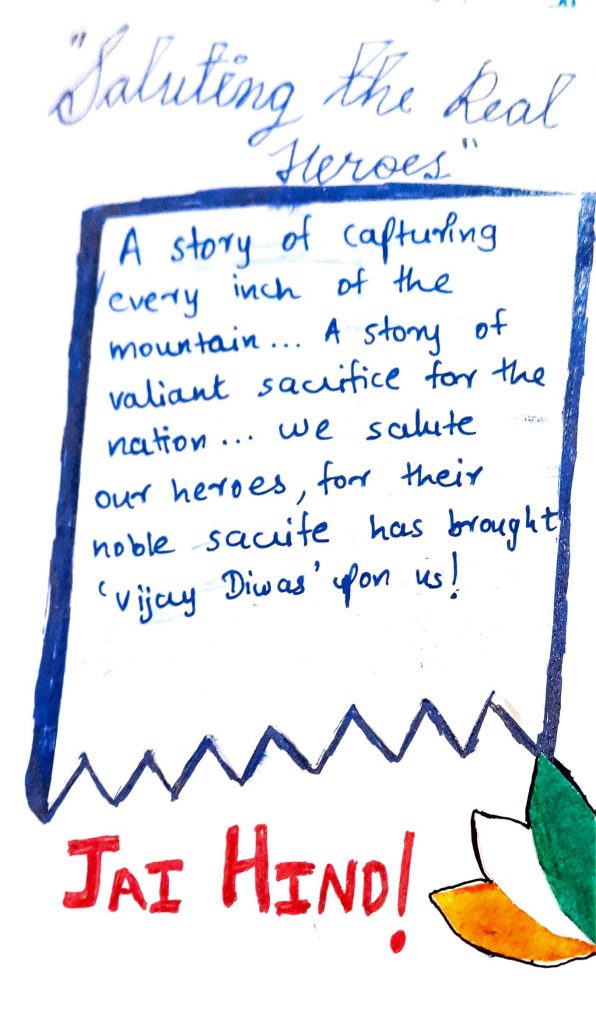 "Saluting the Real
Heroes"
A story of capturing
every inch of the
mountain... A story of
valiant sacrifice for the
nation... we salute
our heroes, for their
noble sacrife has brought
'Vijay Diwas' upon us!
JAI HIND!